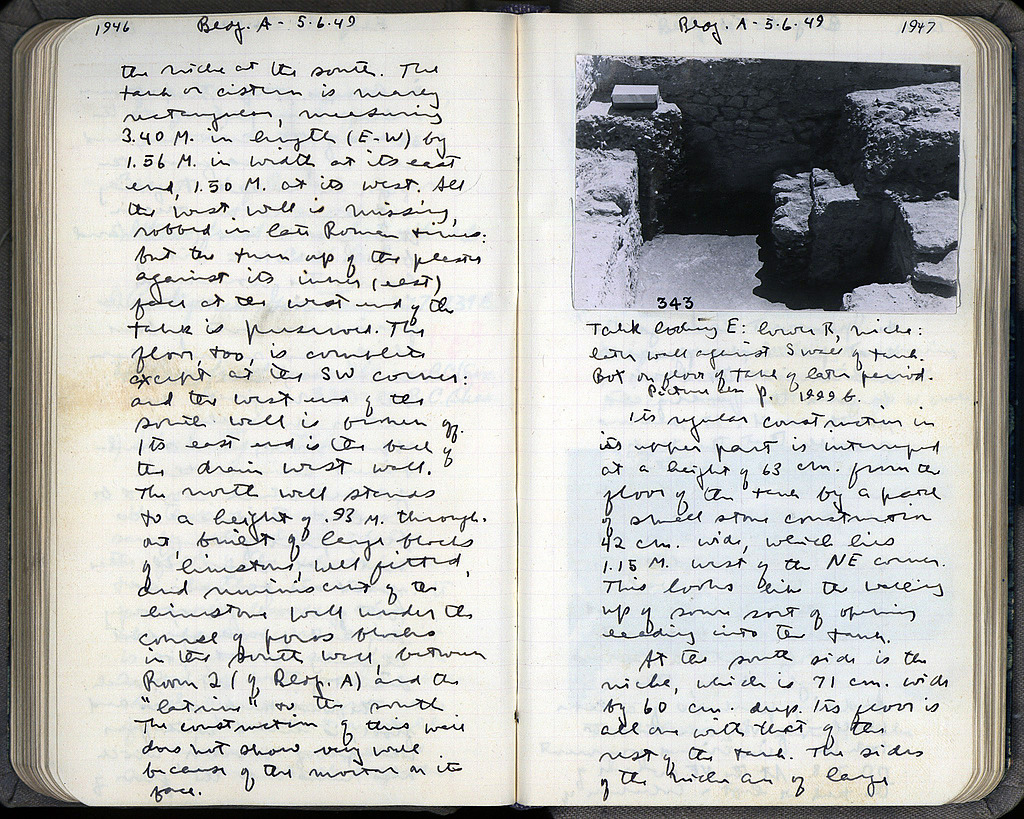 1946 Bldg. A - 5.6.49
the niche at the south. The
tank or cistern is nearly
rectangular, measuring
3.40 M. in length (E-W) by
1.56 M. in width at its east
end, 1.50 M. at its west. All
the west wall is missing,
robbed in late Roman times:
but the turn up of the plaster
against its inner (east)
face at the west end of the
tank is preserved. The
floor, too, is complete
except at its SW corner:
and the west end of the
south wall is broken off.
Its east end is the back of
the drain west wall.
The north wall stands
to a height of .93 M. through-
out, built of large blocks
of limestone, well fitted,
and reminiscent of the
limestone wall under the
course of poros blocks
in the south wall, between
Room 2 (of Bldg. A) and the
"latrine" to the south
The construction of this wall
does not show very well
because of the mortar on its
face.
Bldg. A - 5.6.49 1947
343
Tank looking E: lower R, niche:
later wall against S wall of tank.
Box on floor of tank of later period.
Picture p. 1999 b.
Its regular construction in
its upper part is interrupted
at a height of 63 cm. from the
floor of the tank by a patch
of small stone construction
42 cm. wide, which lies
1.15 M. west of the NE corner.
This looks like the walling
up of some sort of opening
leading into the tank.
At the south side is the
niche, which is 71 cm. wide
by 60 cm. deep. Its floor is
all one with that of the
rest of the tank. The sides
of the niche are of large